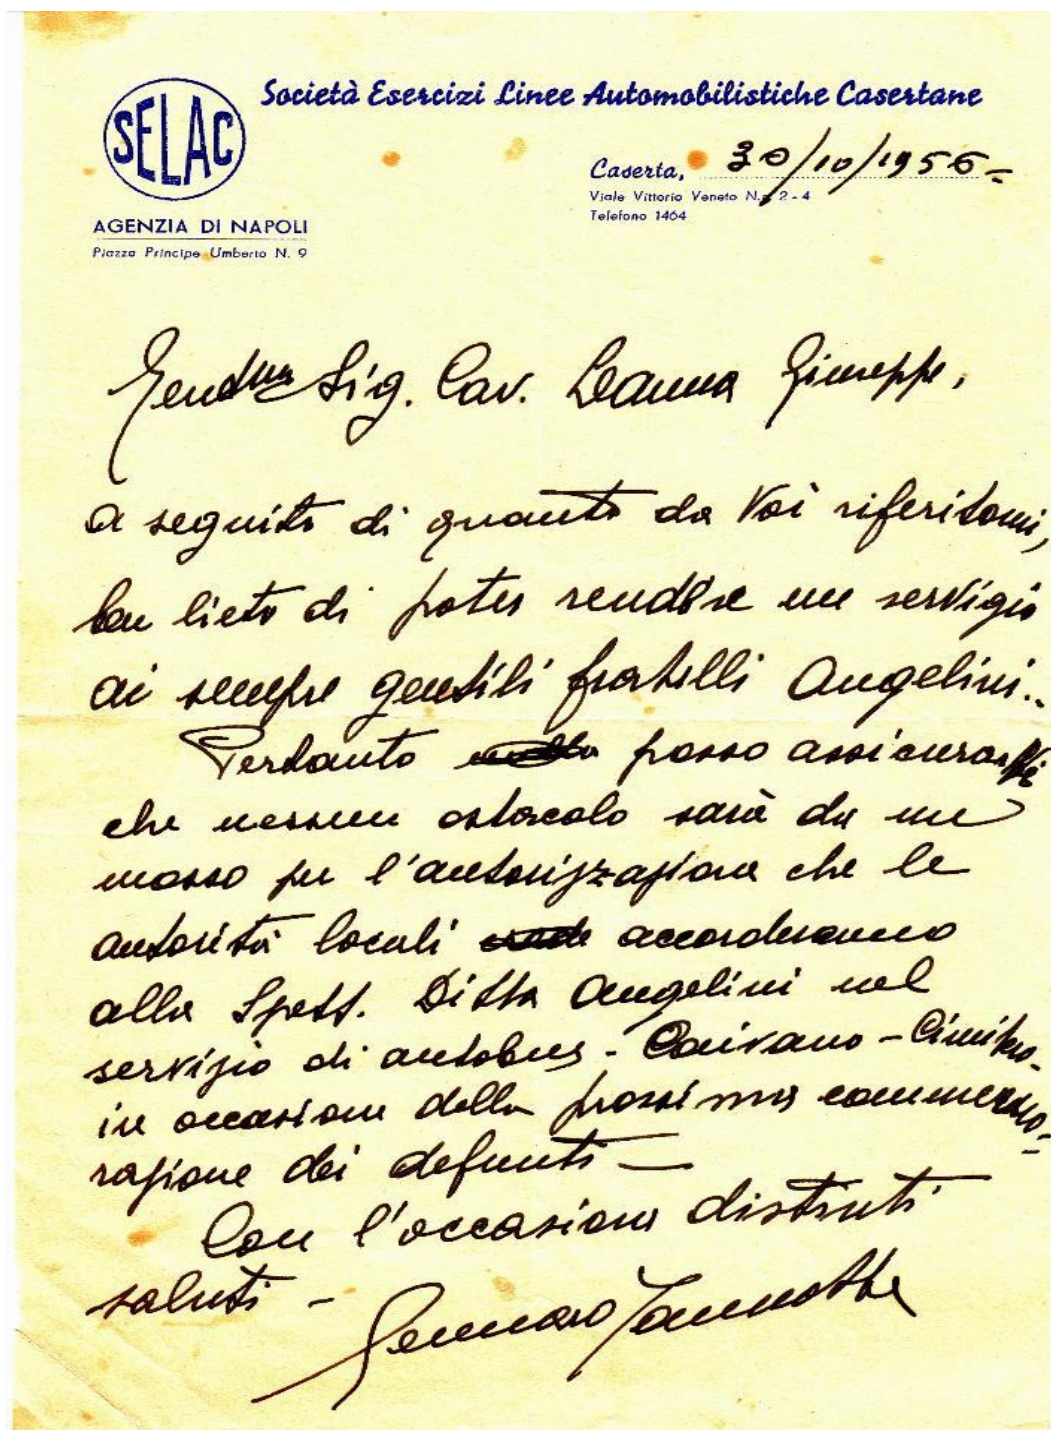 SELAC
Società Esercizi Linee Automobilistiche Casertane
Caserta, 30/10/1956 -
Viale Vittorio Veneto N. 2 - 4
Telefono 1464
AGENZIA DI NAPOLI
Piazza Principe Umberto N. 9
Sig. Cav. Giuseppe,
a seguito di quanto da Voi riferitomi,
ben lieto di poter rendere un servigio
ai sempre gentili fratelli Angelini..
Pertanto posso assicurarVi
che nessun ostacolo sarà da me
mosso per l'autorizzazione che le
autorità locali accorderanno
alla Spett. Ditta Angelini nel
servizio di autobus - Caivano - Cimitero -
in occasione della prossima commemo=
razione dei defunti —
Con l'occasione distinti
saluti -
Gennaro Iannotta